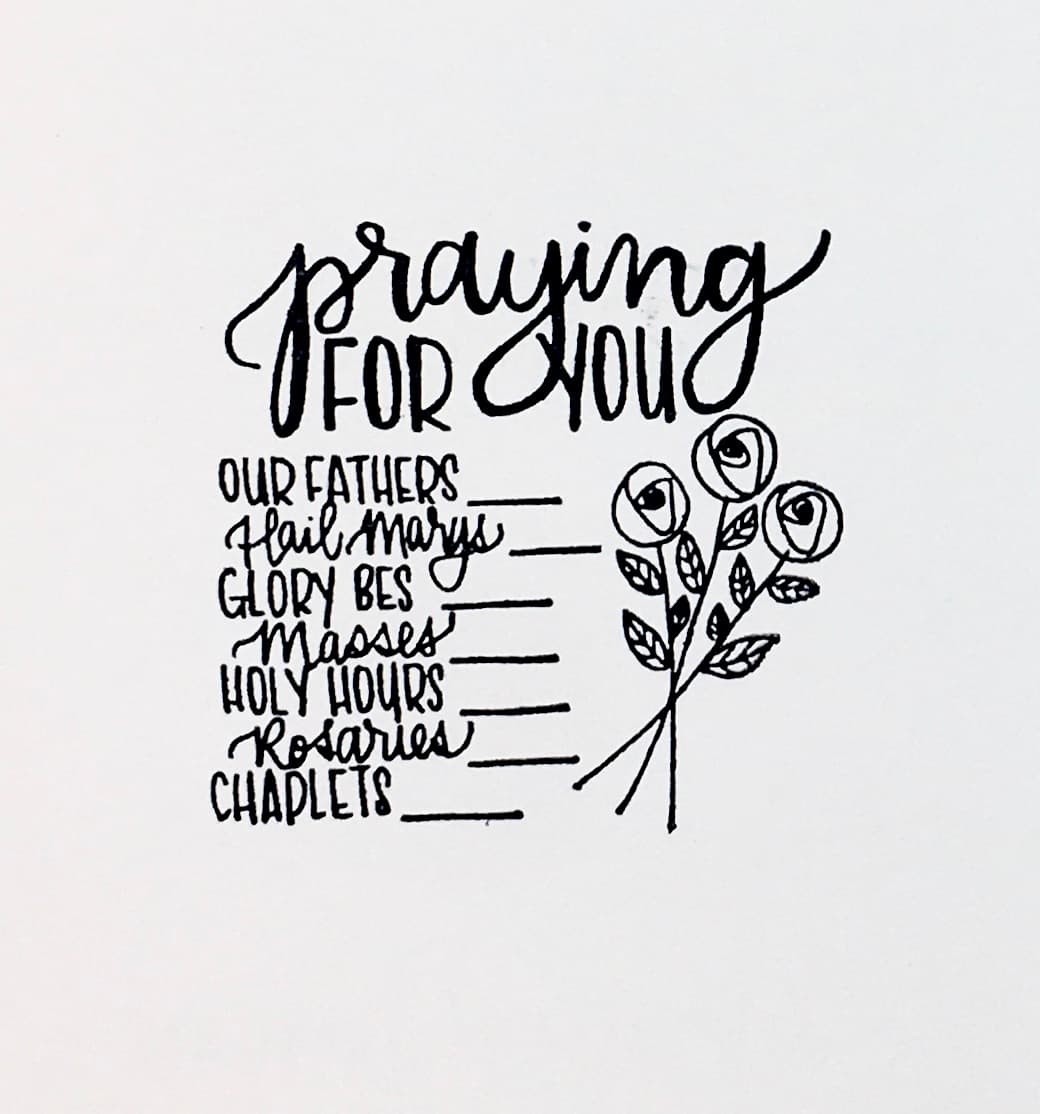 praying
FOR YOU
OUR FATHERS ____
Hail Marys ____
GLORY BES ____
Masses ____
HOLY HOURS ____
Rosaries ____
CHAPLETS ____